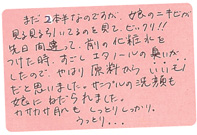 まだ2本半なのですが、娘のニキビが
見る見るうちにへるのを見て、ビックリ!!
先日間違って、前の化粧水を
つけた時、すごしエタノールの臭いが…
したので、やはり原料からいいモノ
だと思いました。サンプルの洗顔も
娘にねだられました。
カサカサ肌もしっとりしっかり。
うっとり・・・